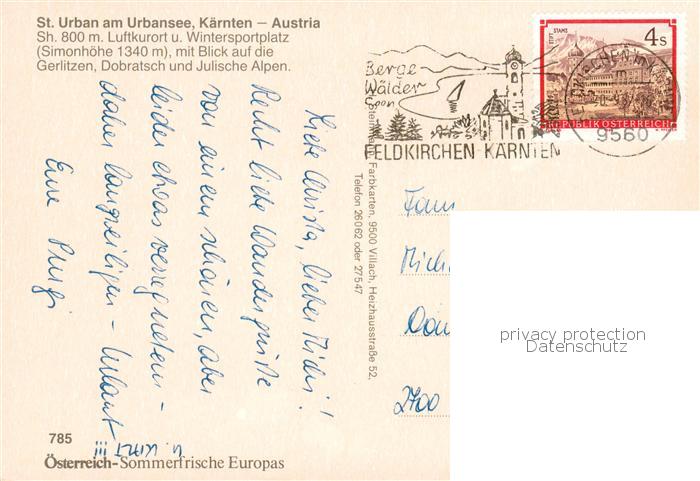 St. Urban am Urbansee, Kärnten – Austria
Sh. 800 m. Luftkurort u. Wintersportplatz
(Simonhöhe 1340 m), mit Blick auf die
Gerlitzen, Dobratsch und Julische Alpen.
Liebe Christa, lieber Michi!
Recht liebe Wandergrüße
von einem schönen, aber
leider etwas verregneten –
daher langweiligen – Urlaub
Eure Pungi
u. KURT !!!
785
Österreich-Sommerfrische Europas
Farbkarten, 9500 Villach, Heizhausstraße 52,
Telefon 26062 oder 27547
Berge
Wälder
Seen
FELDKIRCHEN-KÄRNTEN
STIFT STAMS
4 S
REPUBLIK ÖSTERREICH
9560
Fam
Mich
2700
privacy protection
Datenschutz